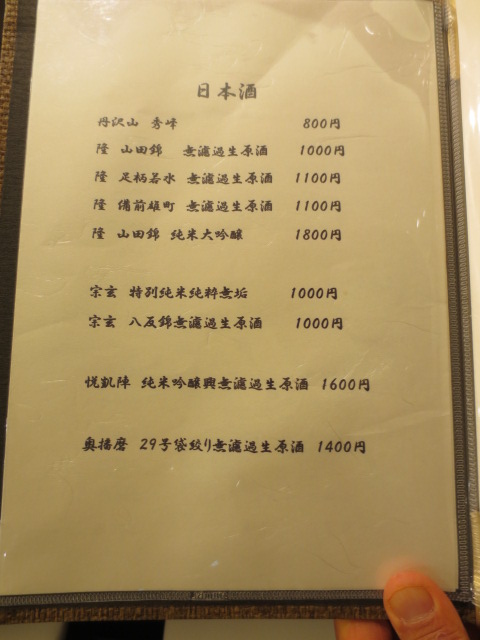 日本酒
丹沢山 秀峰 800円
隆 山田錦 無濾過生原酒 1000円
隆 足柄若水 無濾過生原酒 1100円
隆 備前雄町 無濾過生原酒 1100円
隆 山田錦 純米大吟醸 1800円
宗玄 特別純米純粋無垢 1000円
宗玄 八反錦無濾過生原酒 1000円
悦凱陣 純米吟醸興無濾過生原酒 1600円
奥播磨 29号袋絞り無濾過生原酒 1400円